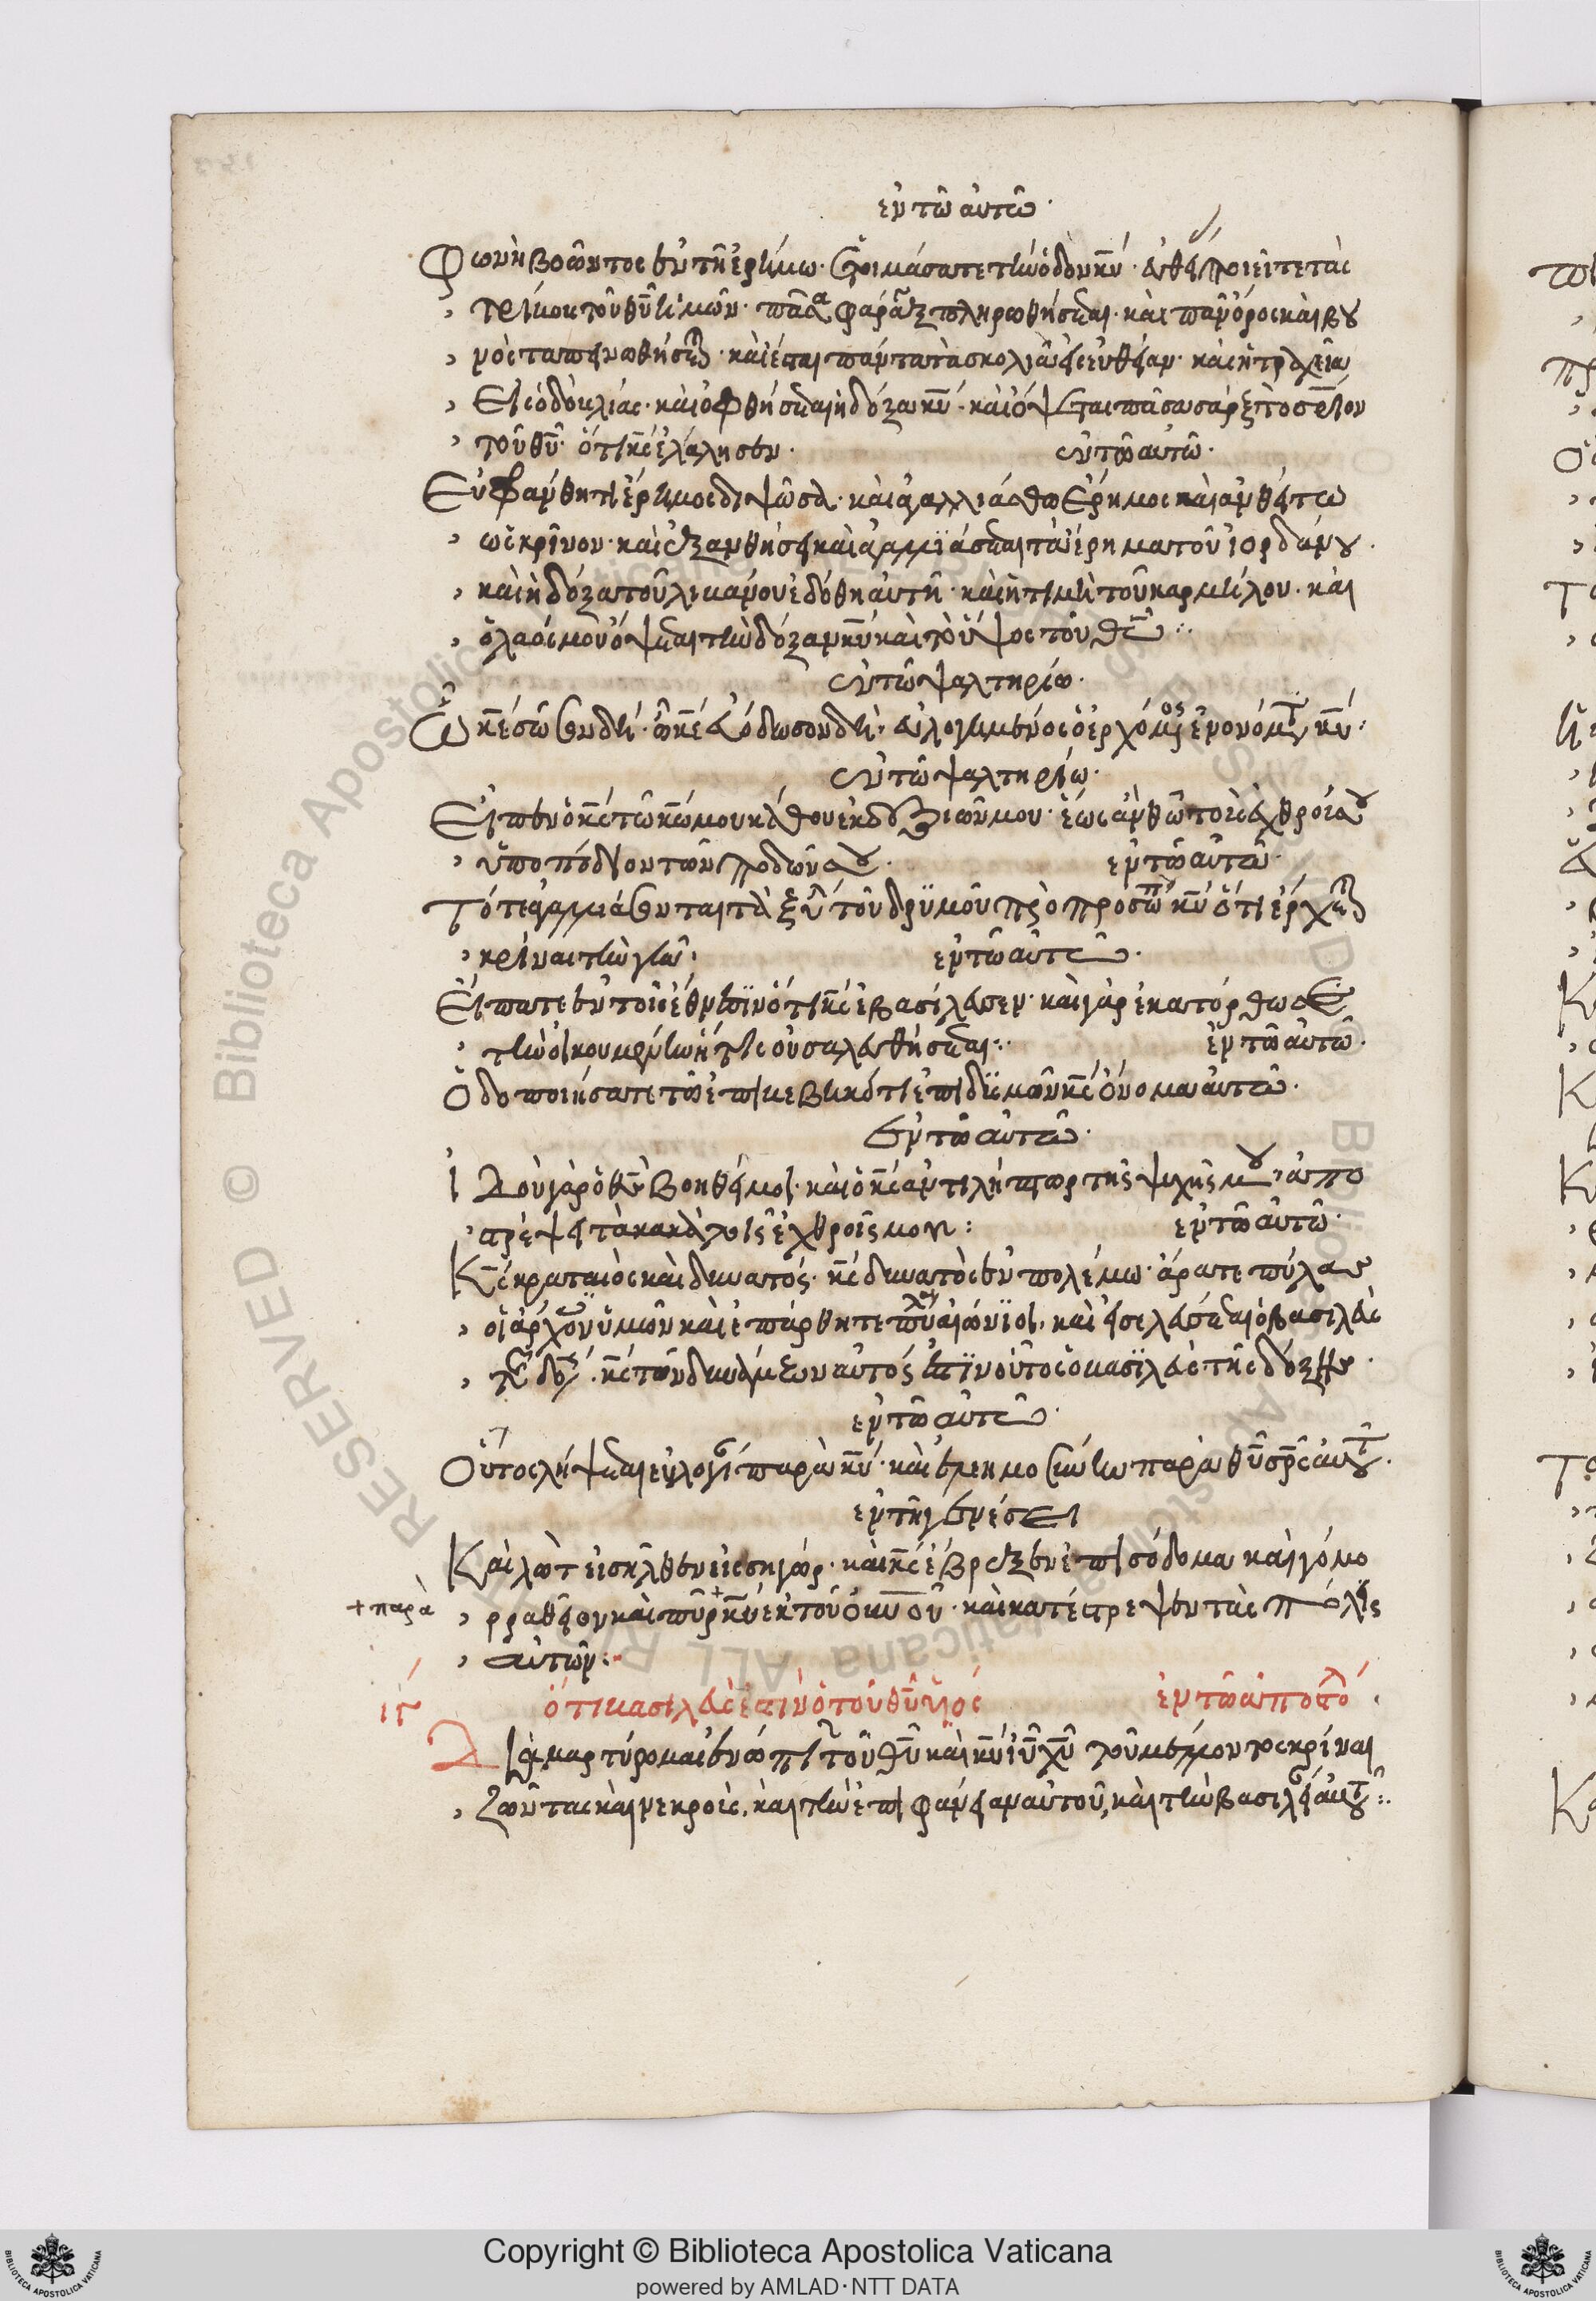 ἐν τῶ αὐτῶ.
Φωνὴ βοῶντος ἐν τῆ ἐρήμω. ἑτοιμάσατε τὴν ὁδὸν κυ. εὐθείας ποιεῖτε τὰς
τρίβους τοῦ θυ ἡμῶν. πᾶσα φάραξ πληρωθήσεται. καὶ πᾶν ὄρος καὶ βου
νὸς ταπεινωθήσεται. καὶ ἔσται πάντα τὰ σκολιὰ εἰς εὐθεῖαν. καὶ ἡ τραχεῖα
εἰς ὁδοὺς λείας. καὶ ὀφθήσεται ἡ δόξα κυ. καὶ ὄψεται πᾶσα σὰρξ τὸ σριον
τοῦ θυ. ὅτι κς ἐλάλησεν. ἐν τῶ αὐτῶ.
Εὐφράνθητι ἔρημος διψῶσα. καὶ ἀγαλλιάσθω ἔρημος καὶ ἀνθείτω
ὡς κρίνον. καὶ ἐξανθήσει καὶ ἀγαλλιάσεται τὰ ἔρημα τοῦ ἰορδάνου.
καὶ ἡ δόξα τοῦ λιβάνου ἐδόθη αὐτῆ. καὶ ἡ τιμὴ τοῦ καρμήλου. καὶ
ὁ λαός μου ὄψεται τὴν δόξαν κυ καὶ τὸ ὕψος τοῦ θυ:
ἐν τῶ ψαλτηρίω.
Ὦ κε σῶσον δή. ὦ κε εὐόδωσον δή. εὐλογημένος ὁ ἐρχόμενος ἐν ὀνόματι κυ:
ἐν τῶ ψαλτηρίω.
Εἶπεν ὁ κς τῶ κω μου κάθου ἐκ δεξιῶν μου. ἕως ἂν θῶ τοὺς ἐχθρούς σου
ὑποπόδιον τῶν ποδῶν σου. ἐν τῶ αὐτῶ.
Τότε ἀγαλλιάσονται τὰ ξύλα τοῦ δρυμοῦ πρὸ προσώπου κυ ὅτι ἔρχεται
κρῖναι τὴν γῆν: ἐν τῶ αὐτῶ.
Εἴπατε ἐν τοῖς ἔθνεσιν ὅτι κς ἐβασίλευσεν. καὶ γὰρ ἐκατόρθωσε
τὴν οἰκουμένην ἥτις οὐ σαλευθήσεται: ἐν τῶ αὐτῶ.
Ὁδοποιήσατε τῶ ἐπιβεβηκότι ἐπὶ δυσμῶν κς ὄνομα αὐτῶ.
ἐν τῶ αὐτῶ.
Ἰδοὺ γὰρ ὁ θς βοηθεῖ μοι. καὶ ὁ κς ἀντιλήπτωρ τῆς ψυχῆς μου. ἀπο
στρέψει τὰ κακὰ τοῖς ἐχθροῖς μου: ἐν τῶ αὐτῶ.
Κς κραταιὸς καὶ δυνατός. κς δυνατὸς ἐν πολέμω. ἄρατε πύλας
οἱ ἄρχοντες ὑμῶν καὶ ἐπάρθητε πύλαι αἰώνιοι. καὶ εἰσελεύσεται ὁ βασιλεὺς
τῆς δόξης. κς τῶν δυνάμεων αὐτός ἐστιν οὗτος ὁ βασιλεὺς τῆς δόξης.
ἐν τῶ αὐτῶ.
Οὗτος λήψεται εὐλογίαν παρὰ κυ. καὶ ἐλεημοσύνην παρὰ θυ σρς αὐτοῦ.
ἐν τῆ γενέσει
Καὶ λὼτ εἰσῆλθεν εἰς σηγώρ. καὶ κς ἔβρεξεν ἐπὶ σόδομα καὶ γόμο
+ παρὰ ρρα θεῖον καὶ πῦρ + κυ ἐκ τοῦ ουνου. καὶ κατέστρεψεν τὰς πόλεις
αὐτῶν:
ιγ ὅτι βασιλεύς ἐστιν ὁ τοῦ θυ υἱός ἐν τῶ ἀποστόλ
Διαμαρτύρομαι ἐνώπιον τοῦ θυ καὶ κυ ιυ χυ τοῦ μέλλοντος κρίναι
ζῶντας καὶ νεκρούς. καὶ τὴν ἐπιφάνειαν αὐτοῦ, καὶ τὴν βασιλείαν αὐτοῦ:
Copyright © Biblioteca Apostolica Vaticana
powered by AMLAD·NTT DATA